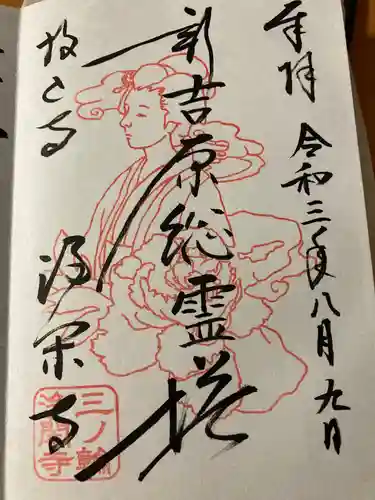 奉拝
令和三年八月九日
新吉原総霊塔
投込寺
浄閑寺
三ノ輪
浄閑寺